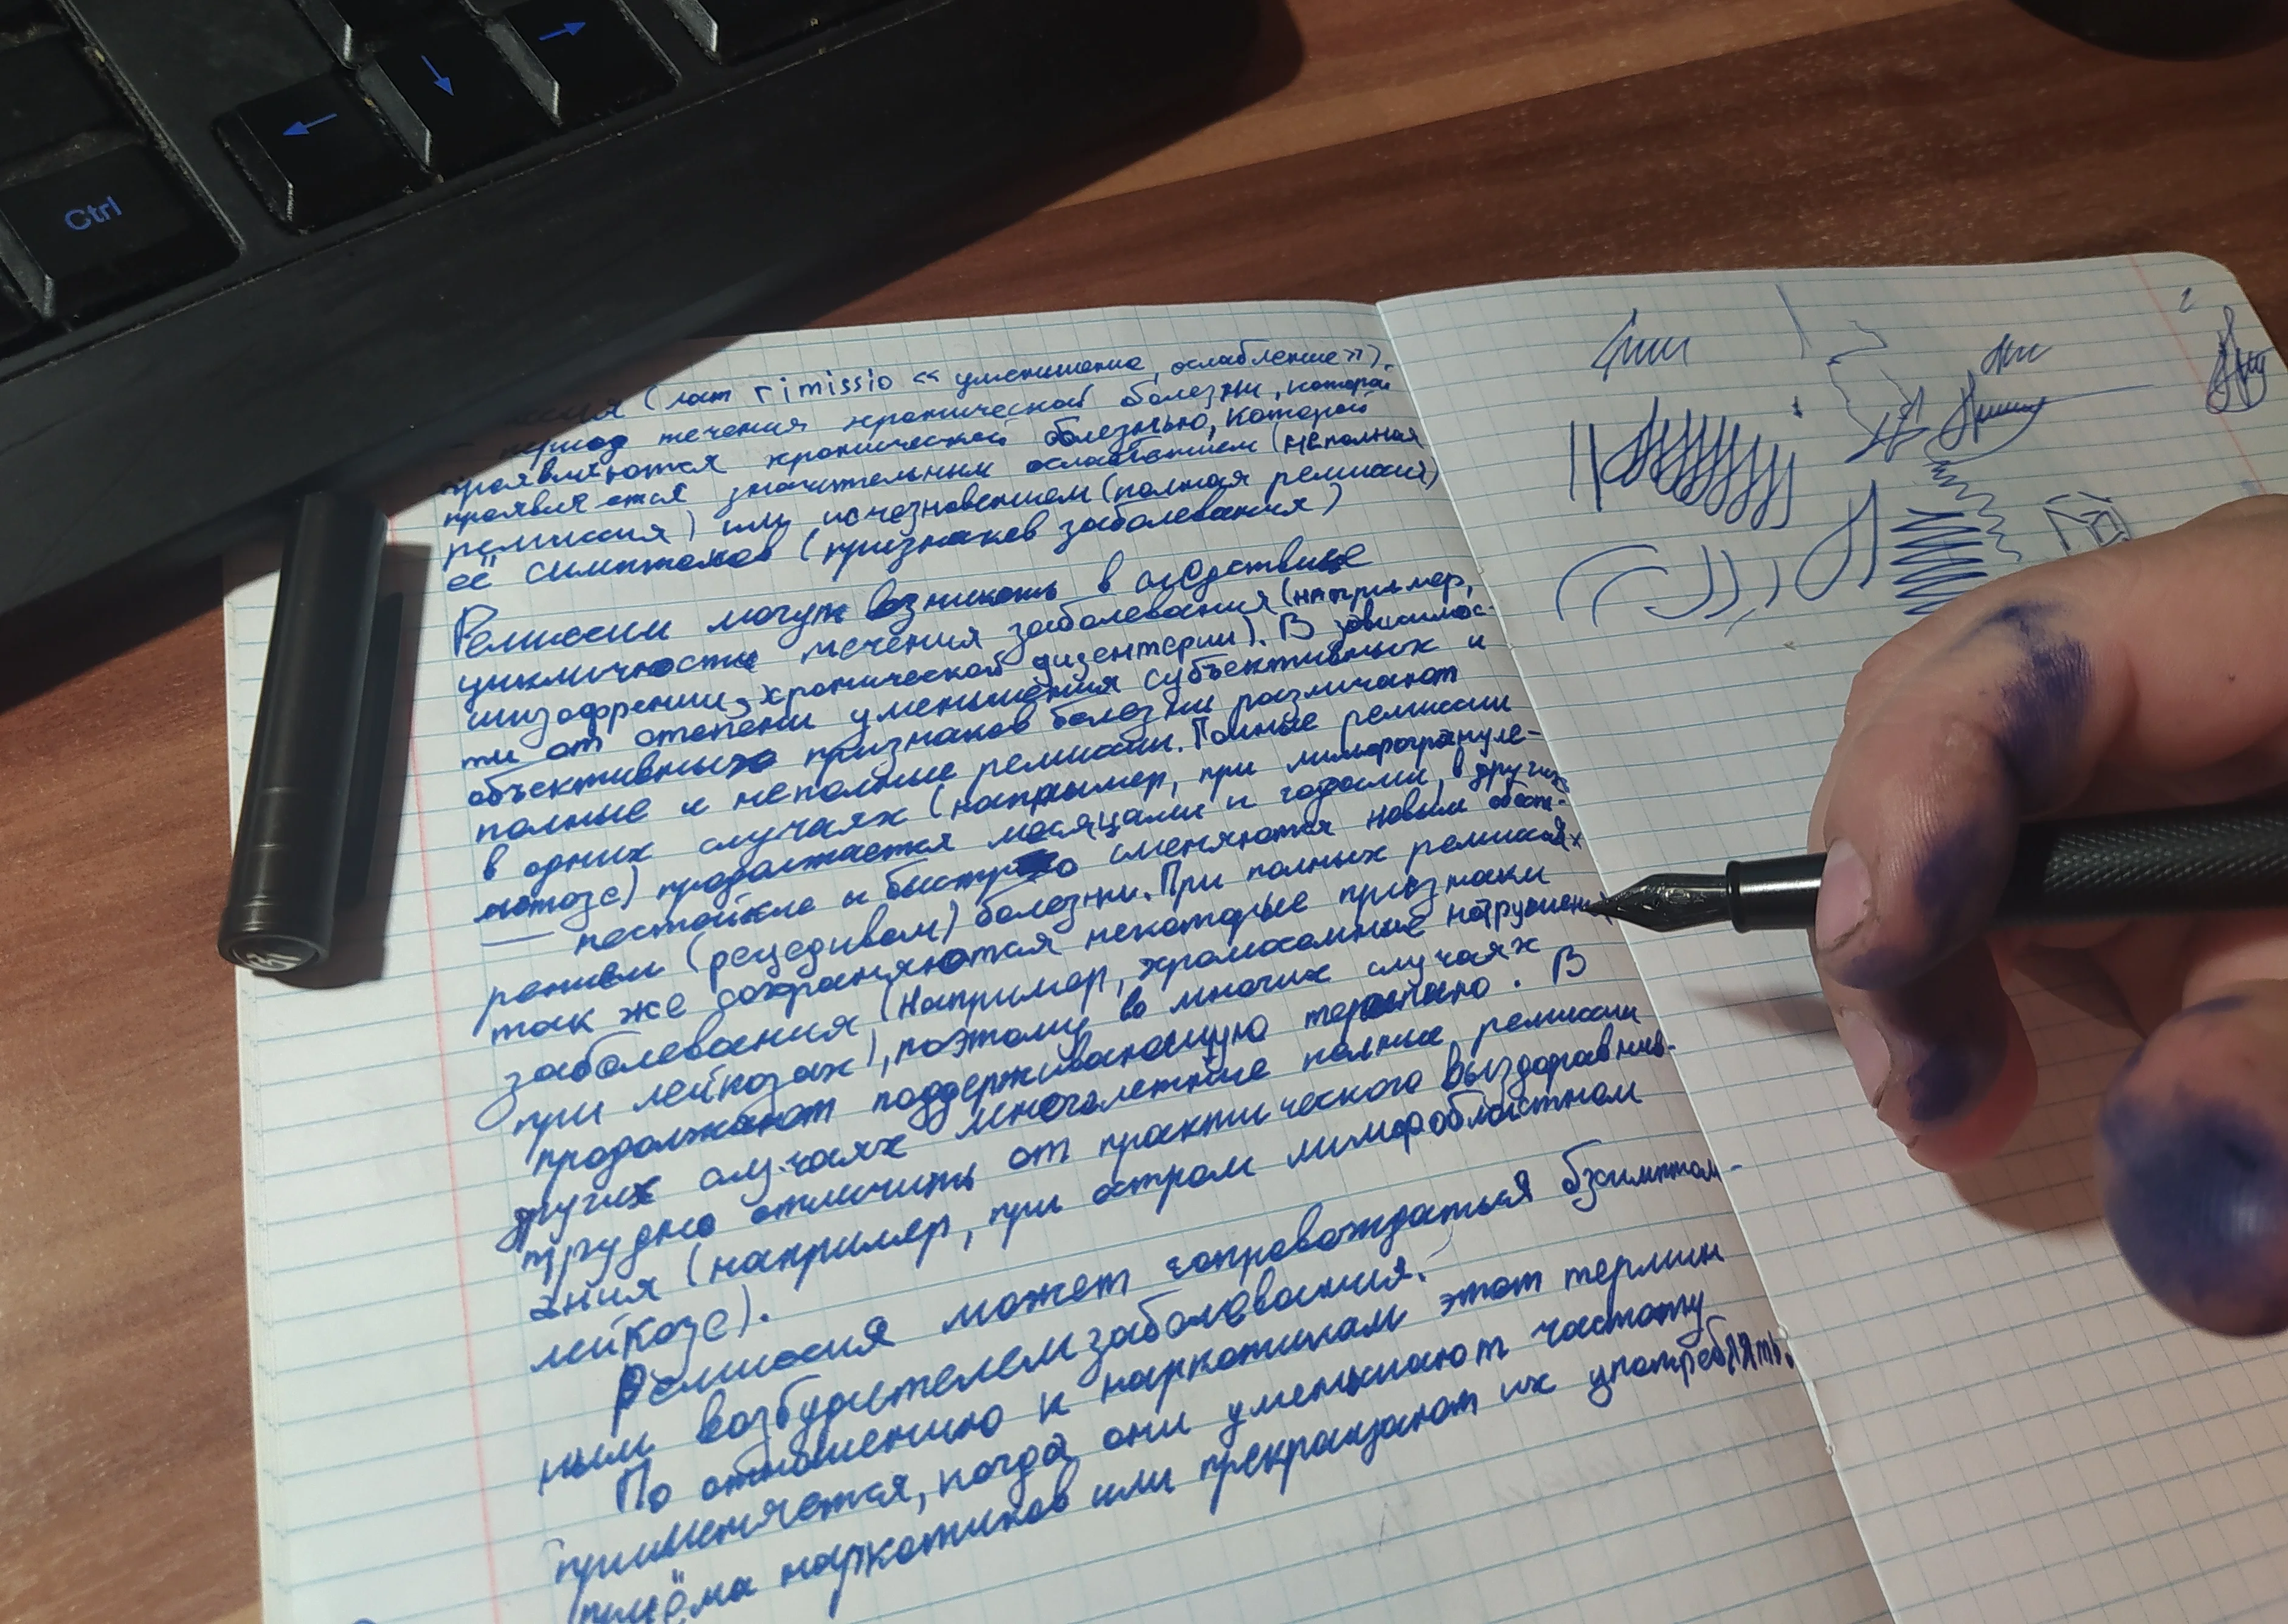 Ctrl
(лат rimissio «уменьшение, ослабление»).
— период течения хронической болезни, которой
проявляются хронической болезнью, которой
проявляются значительным ослаблением (неполная
ремиссия) или исчезновением (полная ремиссия)
её симптомов (признаков заболевания)
Ремиссии могут возникать в следствие
цикличности течения заболевания (например,
шизофрении, хронической дизентерии). В зависимос-
ти от степени уменьшения субъективных и
объективных признаков болезни различают
полные и неполные ремиссии. Полные ремиссии
в одних случаях (например, при лимфогрануле-
матозе) продолжается месяцами и годами, в других
— нестойкие и быстро сменяются новым обост-
рением (рецедивом) болезни. При полных ремиссиях
так же сохраняются некоторые признаки
заболевания (например, хромосомные нарушения
при лейкозах), поэтому во многих случаях
продолжают поддерживающую терапию. В
других случаях многолетние полные ремиссии
трудно отличить от практического выздоравлив-
ания (например, при остром лимфобластном
лейкозе).
Ремиссия может сопровождаться бзсимптом-
ным возбудителем заболевания.
По отношению к наркотикам этот термин
применяется, когда они уменьшают частоту
приёма наркотиков или прекращают их употреблять.